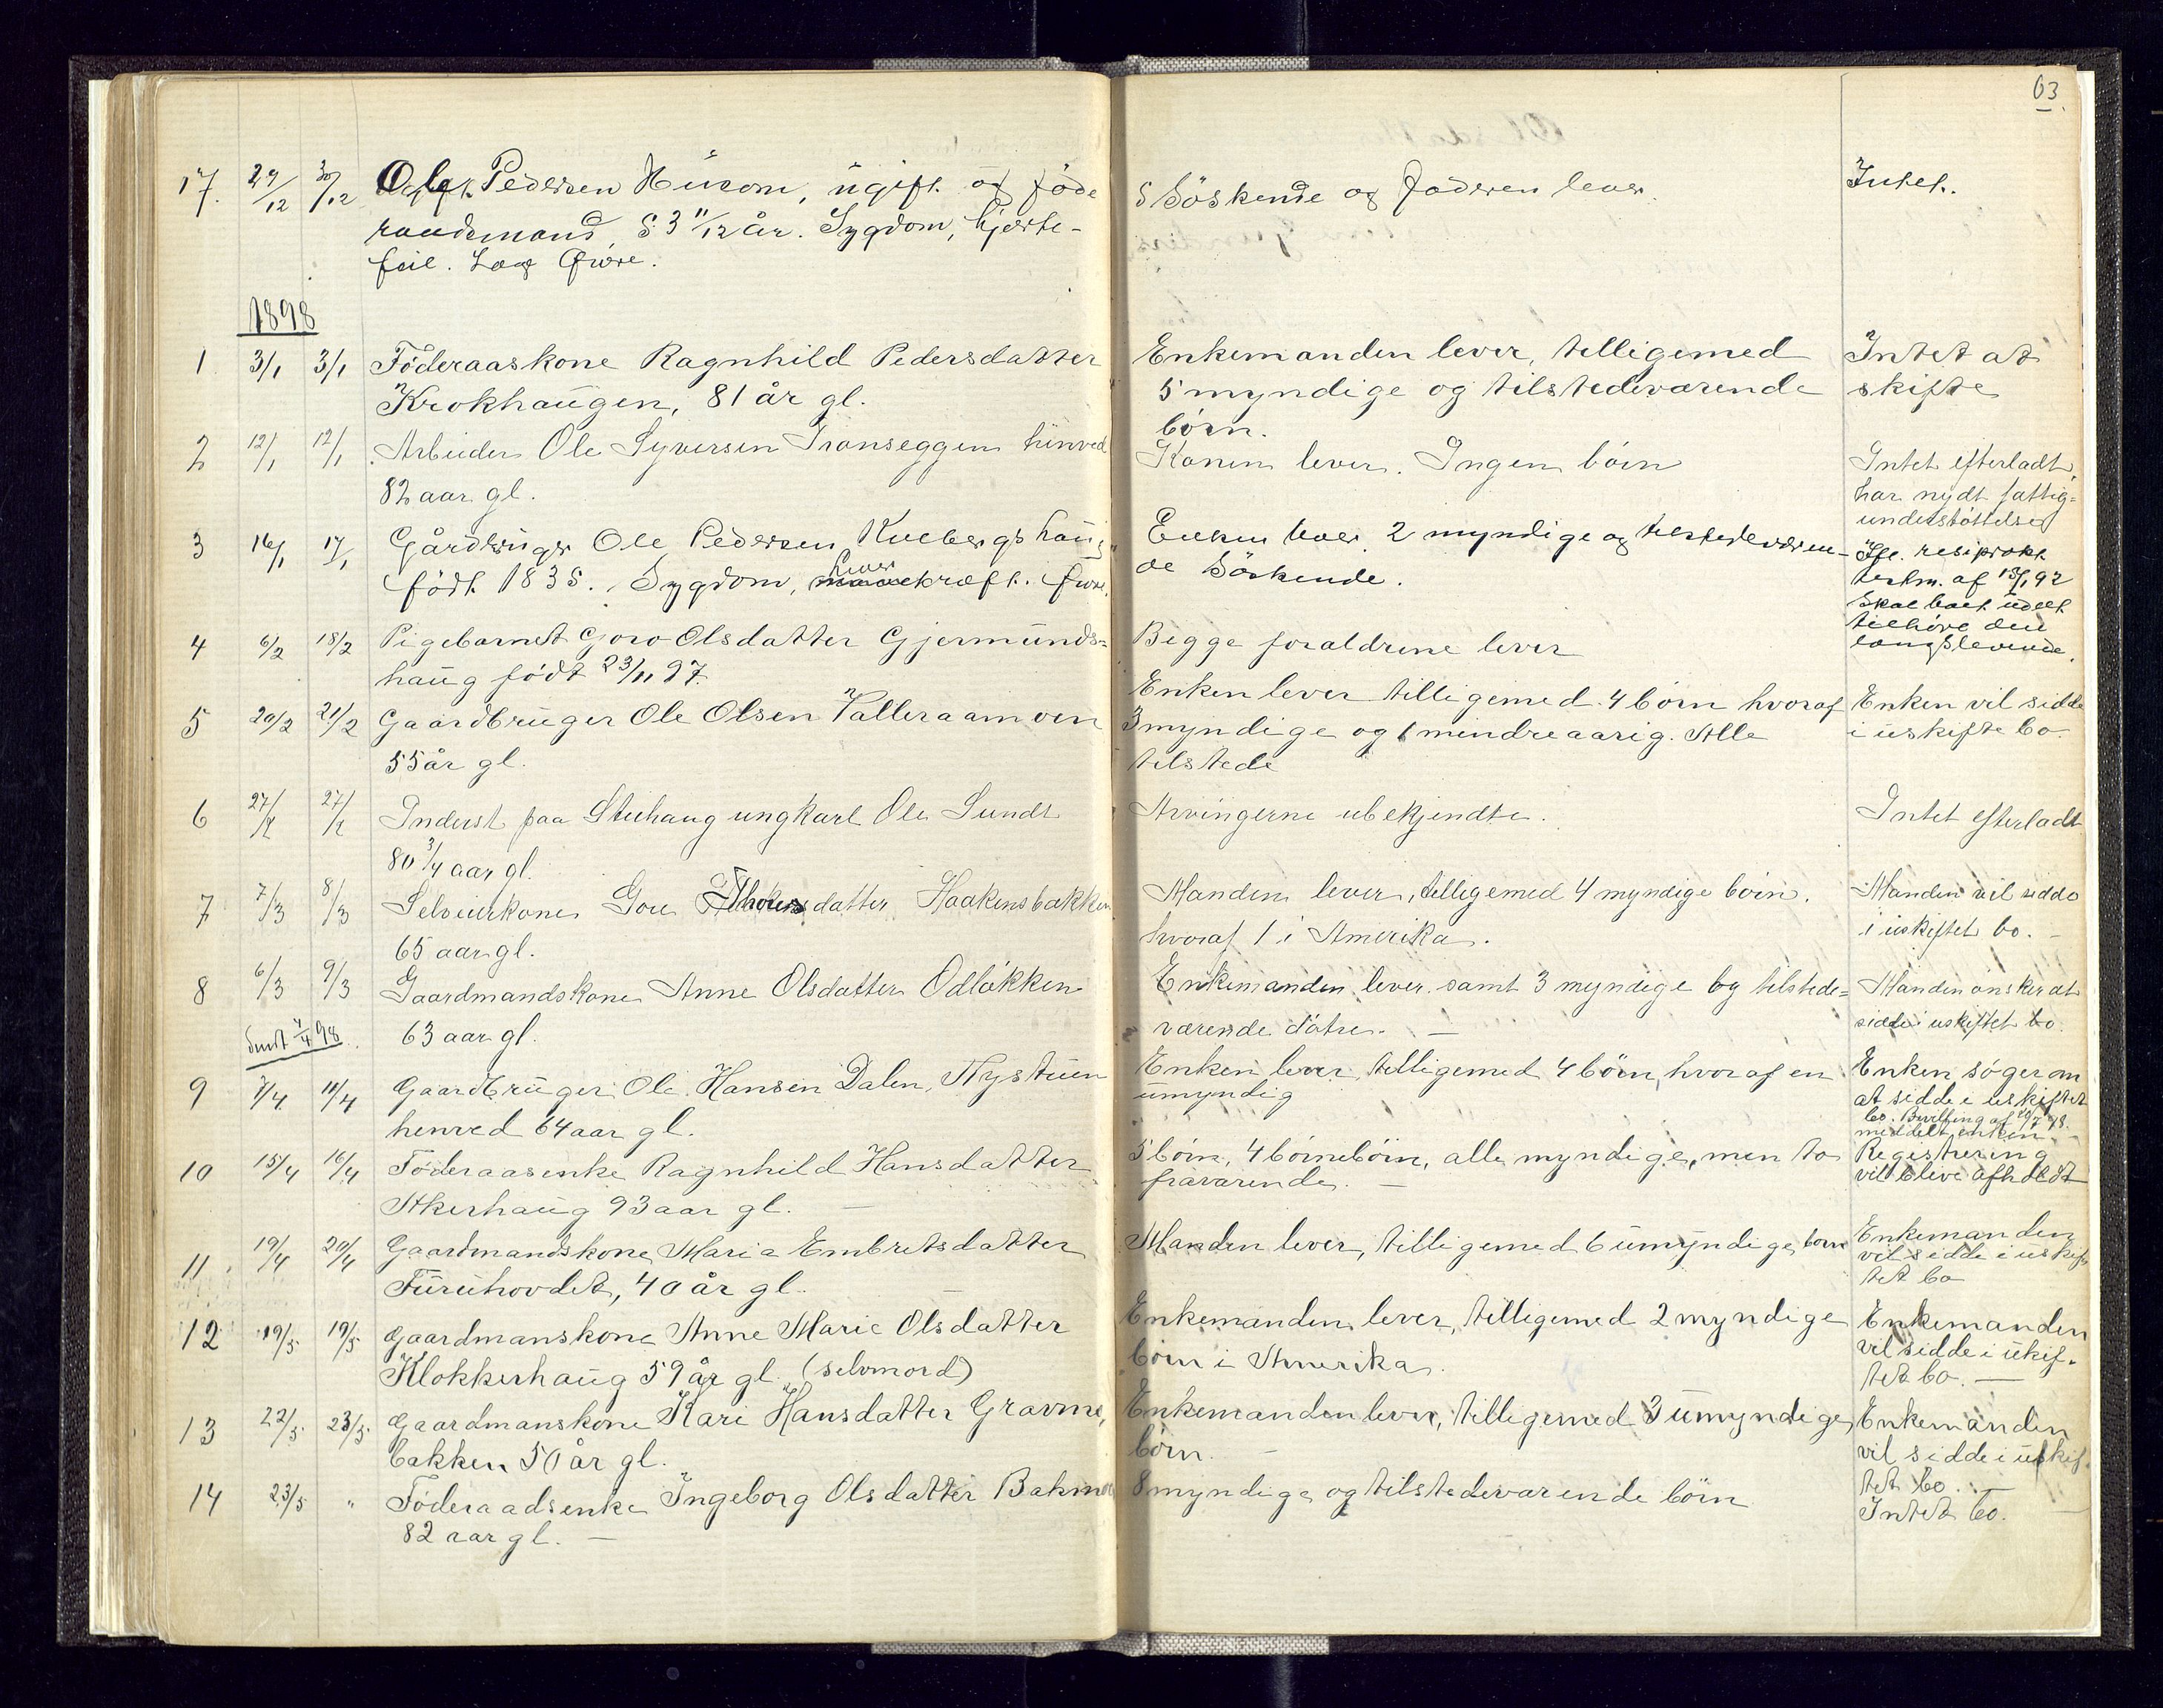 63.
17. 29/12 30/12 Ole Pedersen Husom, ugift og föde
raadsmand, 53 11/12 år. Sygdom, hjerte-
feil. Læge Qvire.
5 Söskende og Faderen lever.
Intet.
1898
1 3/1 3/1 Föderaaskone Ragnhild Pedersdatter
Krokhaugen, 81 år gl.
Enkemanden lever, telligemed
5 myndige og tilstedeværende
börn.
Intet at
skifte
2 12/1 12/1 Arbeider Ole Syversen Transeggen hinved
82 aar gl.
Konen lever. Ingen börn
Intet efterladt,
har nydt fattig=
understöttelse
3 16/1 17/1 Gårdbruger Ole Pedersen Kvebergshaug
født 1835. Sygdom, lever kræft.
Enken lever. 2 myndige og tilstedeværen-
de Söskende.
Ifl. resiprokt
testm. af 13/1 92
skal boet udelt
tilhöre den
længstlevende.
4 6/2 18/2 Pigebarnet Goro Olsdatter Gjermunds=
haug født 23/11 97.
Begge foraldrene lever
5 20/2 21/2 Gaardbruger Ole Olsen Valleraamoen
55 år gl.
Enken lever tilligemed 4 börn hvoraf
3 myndige og 1 mindreaarig. Alle
tilstede
Enken vil sidde
i uskifte bo.
6 27/2 27/2 Inderst paa Steihaug ungkarl Ole Sundt
80 3/4 aar gl.
Arvingerne ubekjendte.
Intet efterladt
7 7/3 8/3 Selveierkone Gou datter Haakensbakken
65 aar gl.
Manden lever, telligemed 4 myndige börn.
hvoraf 1 i Amerika.
Manden vil sidde
i uskiftet bo. -
8 6/3 9/3 Gaardmandskone Anne Olsdatter Odlökken
63 aar gl.
Enkemanden lever samt 3 myndige og tilstede=
værende dötre. -
Manden önsker at
sidde i uskiftet bo.
Sendt 4/4 98.
9 7/4 11/4 Gaardbruger Ole Hansen Dalen, Nystuen
henved 64 aar gl.
Enken lever, telligemed 4 börn, hvoraf en
umyndig
Enken söger om
at sidde i uskiftet
bo. Bevilling af 20/7 98.
meddelt enken. -
10 15/4 16/4 Föderaasenke Ragnhild Hansdatter
Akerhaug 93 aar gl. -
5 börn, 4 börnebörn, alle myndige, men to
fraværende. -
Registrering
vil blive afholdt
11 19/4 20/4 Gaardmandskone Maria Embretsdatter
Furuhovdet, 40 år gl.
Manden lever, tilligemed 6 umyndige børn
Enkemanden
vil sidde i uskif
tet bo
12 19/5 19/5 Gaardmanskone Anne Marie Olsdatter
Klokkerhaug 59 år gl. (selvmord)
Enkemanden lever, tilligemed 2 myndige
börn i Amerika.
Enkemanden
vil sidde i ukif-
tet bo. -
13 22/5 23/5 Gaardmanskone Kari Hansdatter Gravme,
bakken 50 år gl.
Enkemanden lever, tilligemed 3 umyndige
börn. -
Enkemanden
vil sidde i uskif-
tet bo. -
14 23/5 " Föderaadsenke Ingeborg Olsdatter Bakmo
82 aar gl. -
8 myndige og tilstedevarende börn
Intet bo. -